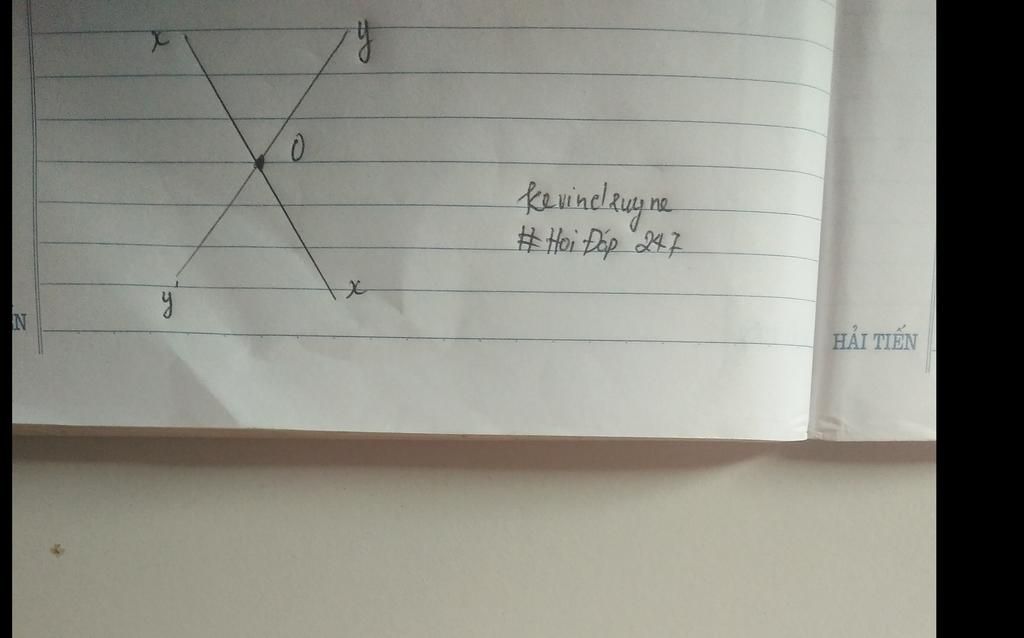 x y
O
y' x
kevindeuyne
#Hoi Đáp 247
HẢI TIẾN